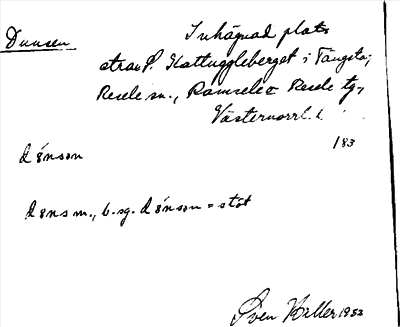 Dunsen
Inhägnad plats
strax S. Kattuggleberget i Tängsta,
Resele sn., Ramsele o Resele tg.,
Västernorrl. l
183
dønsøn
døns m., b. sg. dønsøn = stöt
Sven Hiller 1932